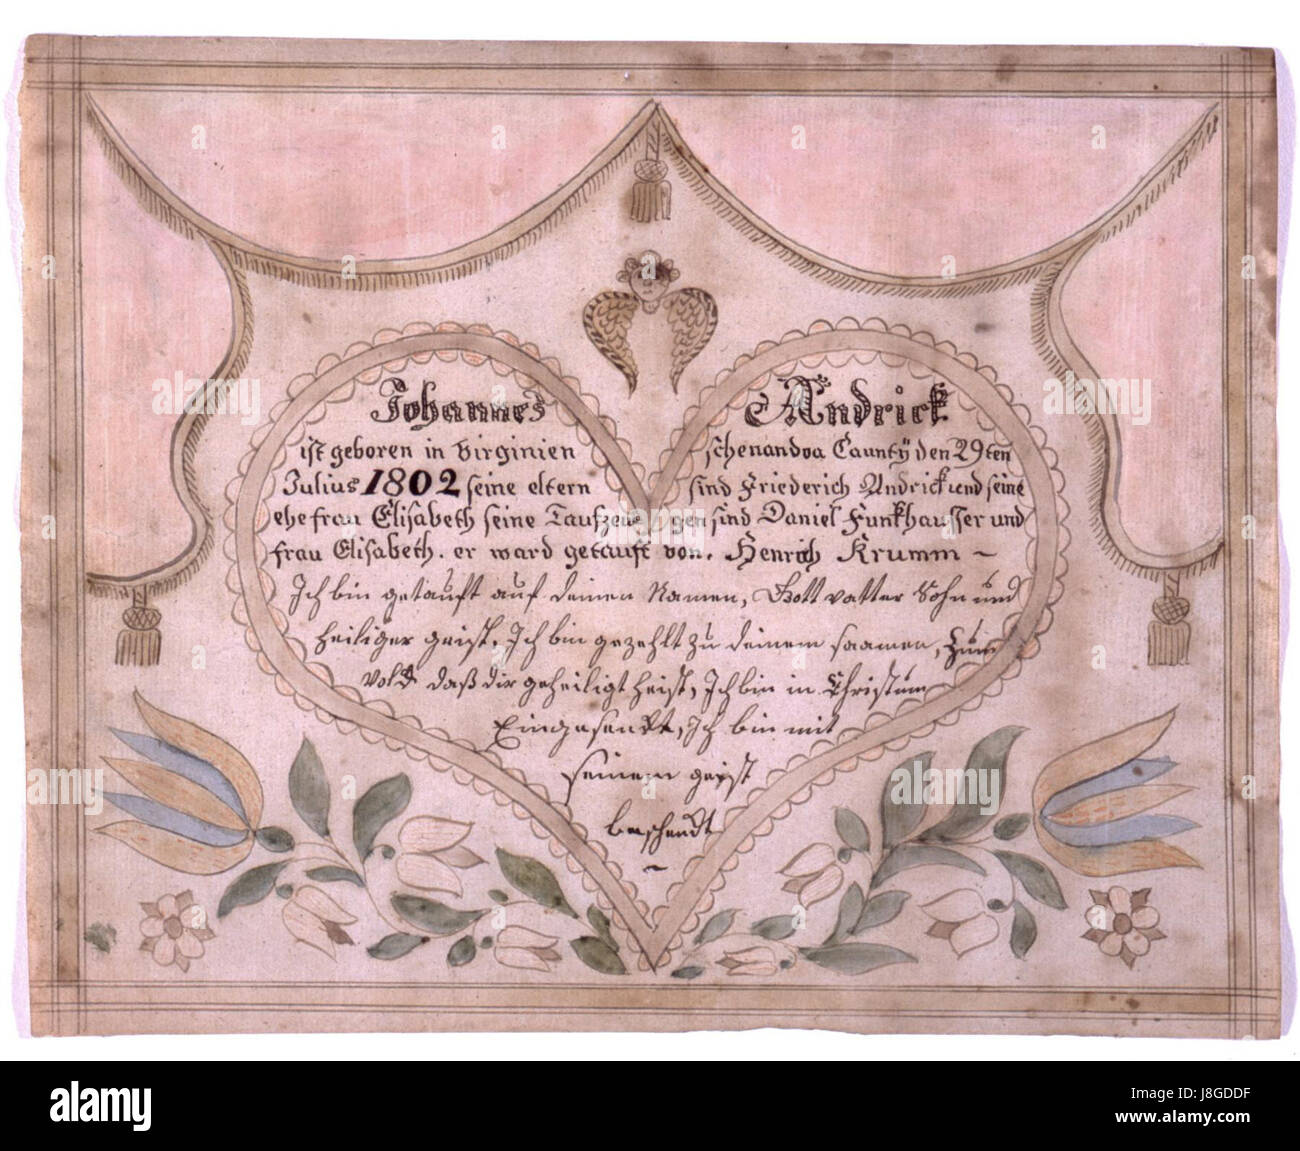 Johannes Andrick
ist geboren in Virginien schenandoa Caunty den 29ten
Julius 1802 seine eltern sind Friederich Andrick und seine
ehefrau Elisabeth seine Taufzeugen sind Daniel Funkhausser und
frau Elisabeth. er ward getauft von. Henrich Krumm ~
Ich bin getauft auf deinen Namen, Gott vatter Sohn und
heiliger geist, Ich bin gezehlt zu deinem saamen, zum
volck daß dir geheiligt heist, Ich bin in Christum
Eingesenckt, ich bin mit
seinem geist
beschenckt
~
alamy
Image ID: J8GDDF
www.alamy.com